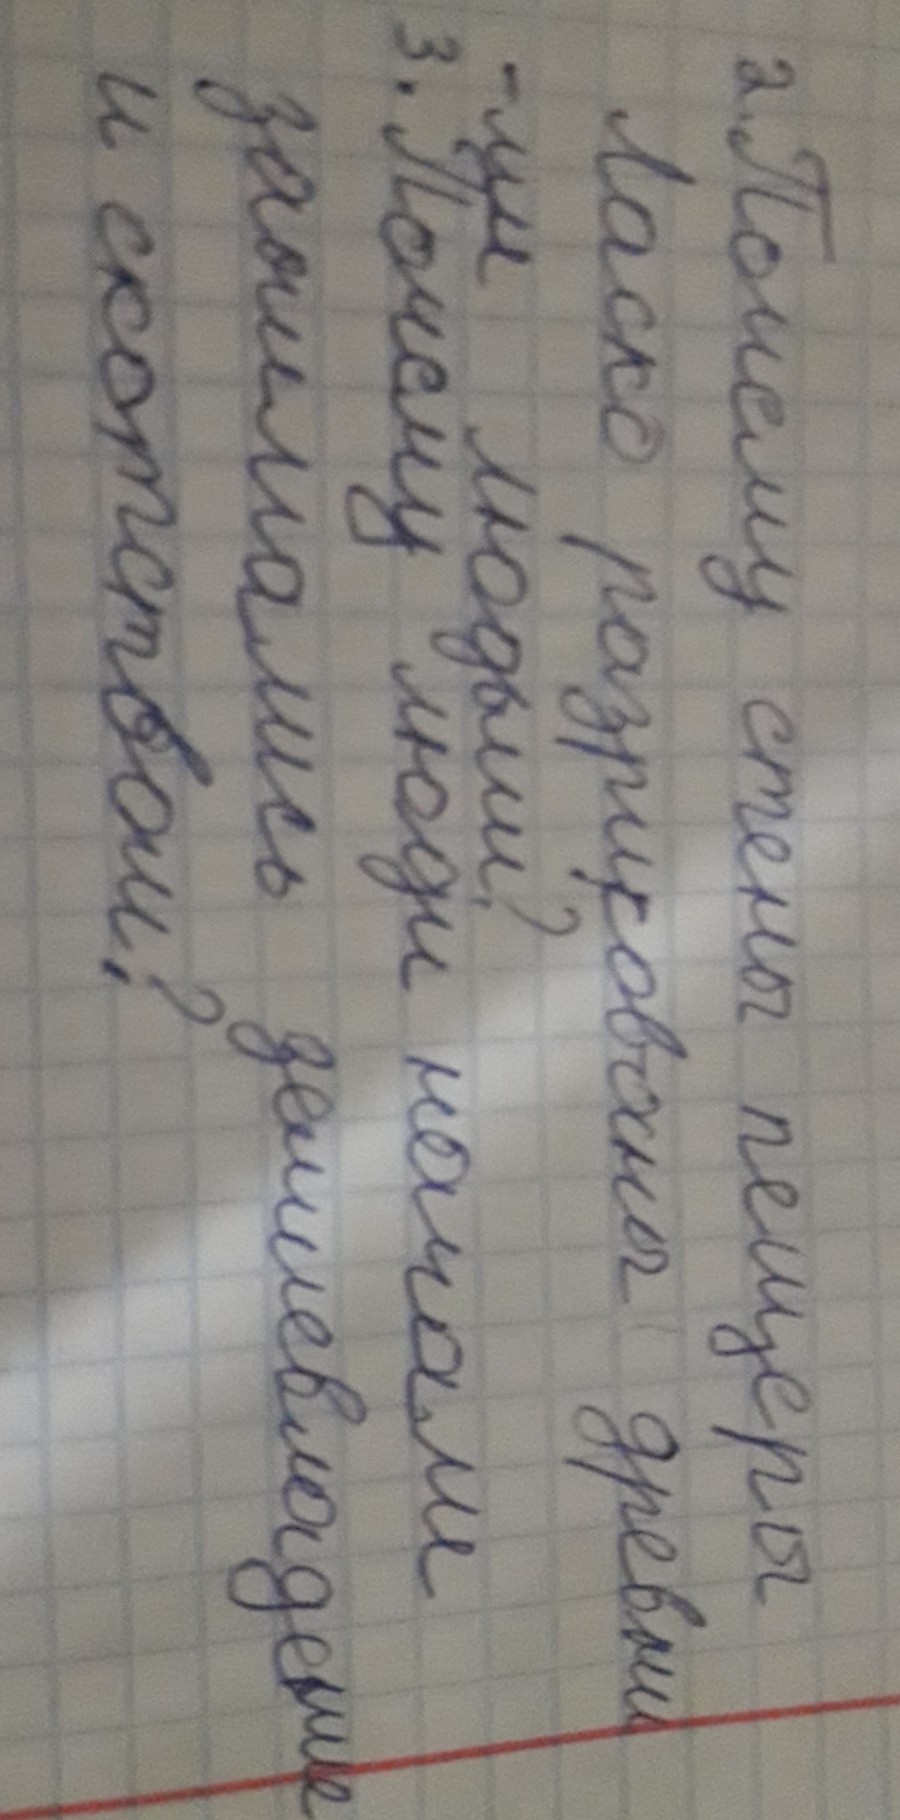 2. Почему стены пещеры
Ласко разрисованы древни
-ми людьми?
3. Почему люди начали
заниматься
и скотством?